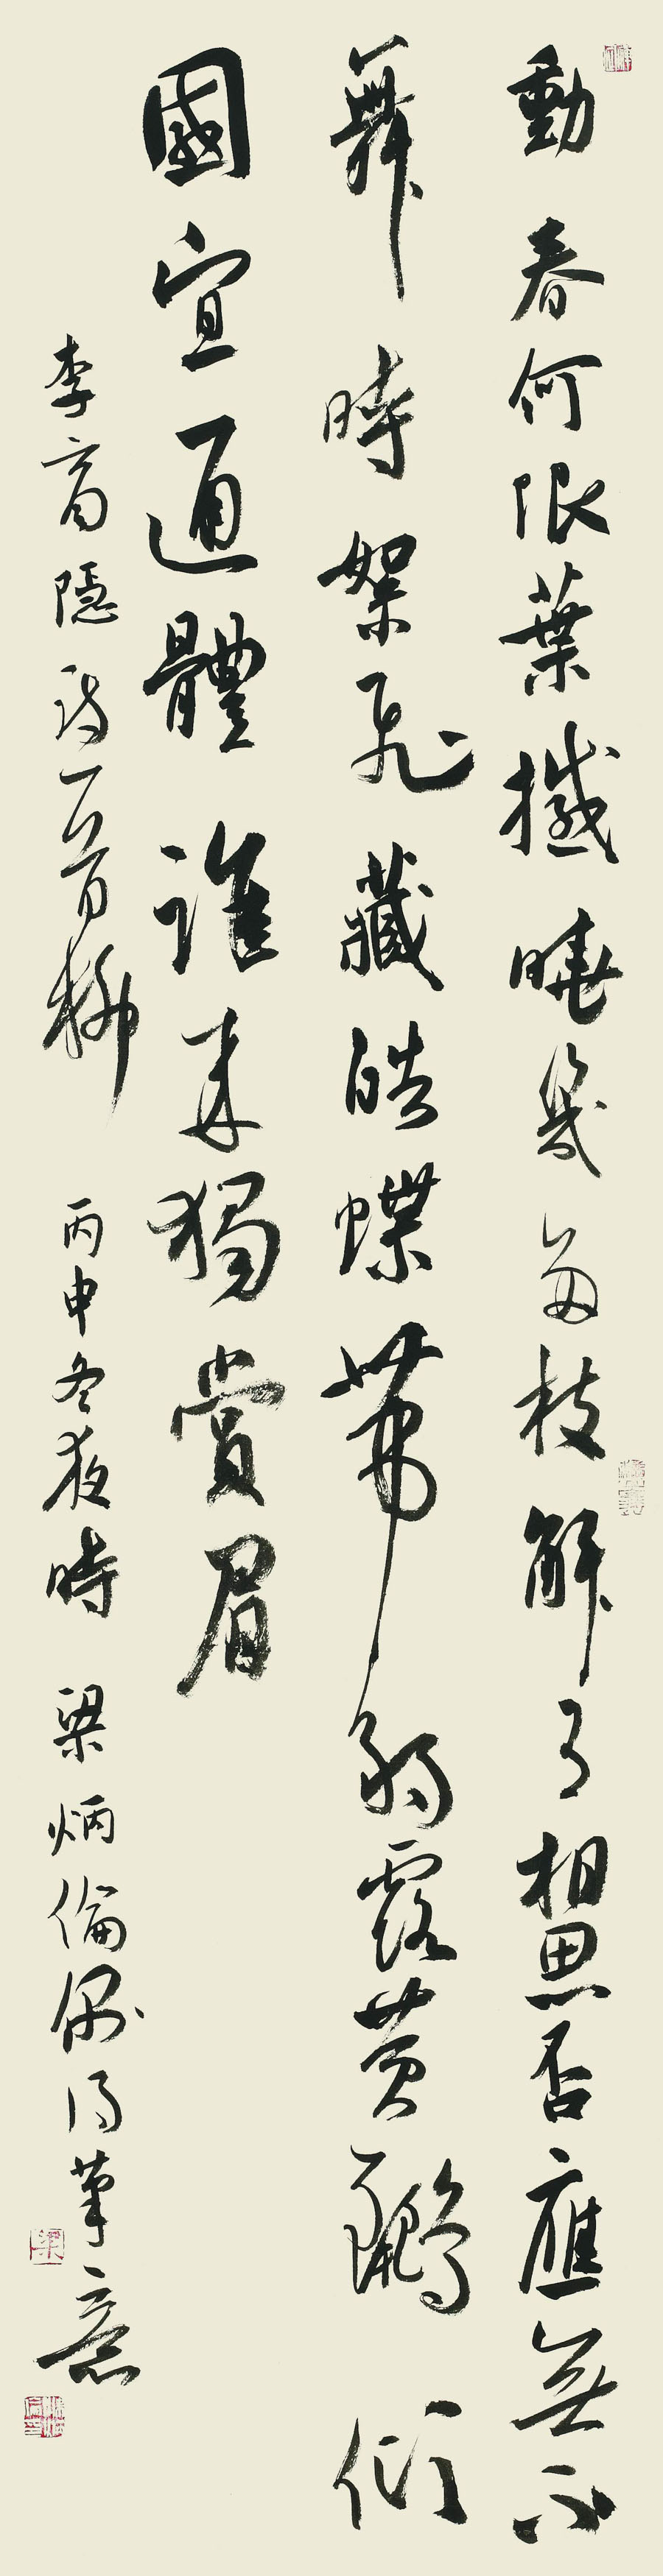 動春何限葉撼曉幾多枝解有相思否應無不
舞時絮飛藏皓蝶帶弱露黄鸝傾
國宜通體誰来獨賞眉
李商隱詩一首柳 丙申冬夜時 梁炳倫偶得筆意